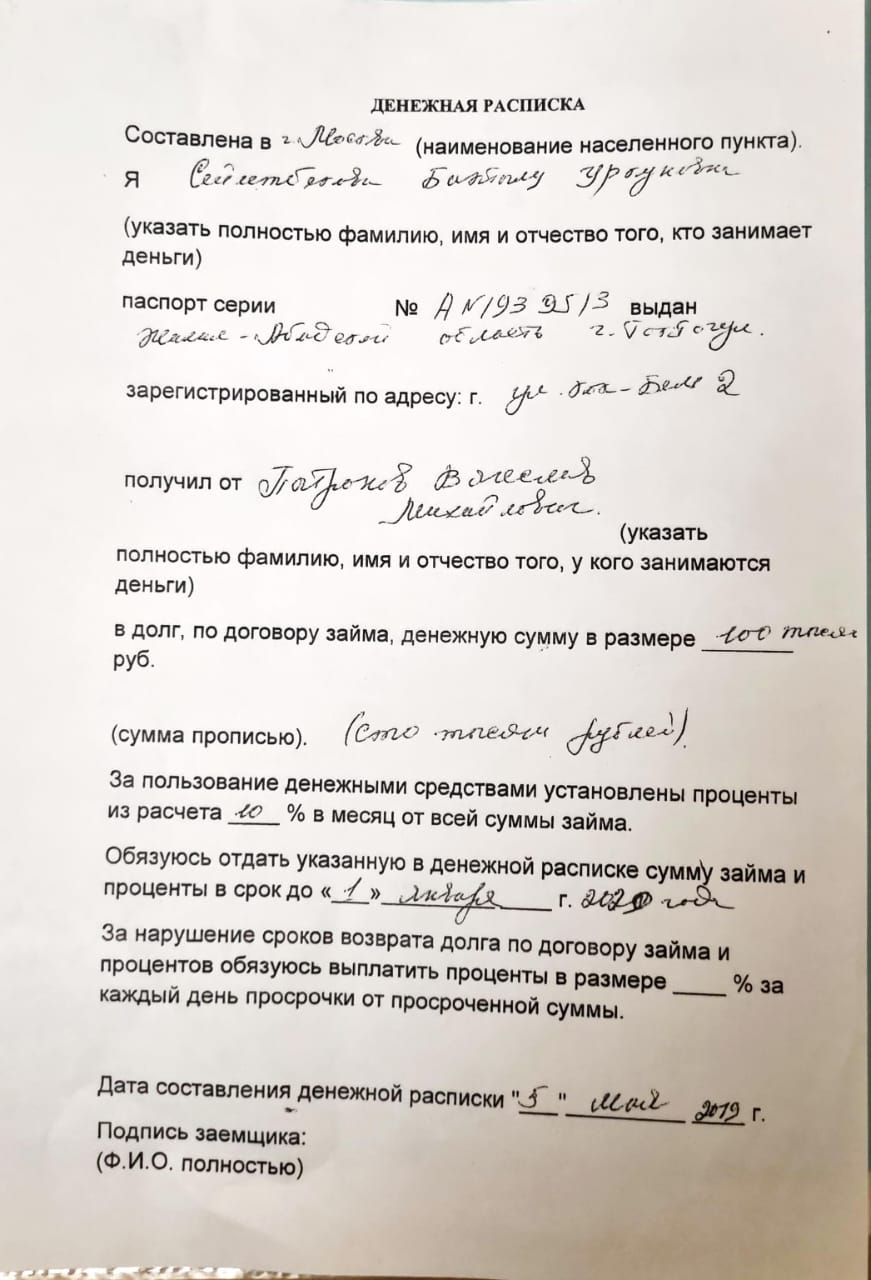 ДЕНЕЖНАЯ РАСПИСКА
Составлена в г. Москва (наименование населенного пункта).
Я Уркуновна
(указать полностью фамилию, имя и отчество того, кто занимает
деньги)
паспорт серии № AN193 95/3 выдан
Жалал-Абадской область г. Токтогул.
зарегистрированный по адресу: г. ул. 2
получил от Патронов
Михайлович.
(указать
полностью фамилию, имя и отчество того, у кого занимаются
деньги)
в долг, по договору займа, денежную сумму в размере 100 тысяч
руб.
(сумма прописью). (сто тысяч рублей).
За пользование денежными средствами установлены проценты
из расчета 10 % в месяц от всей суммы займа.
Обязуюсь отдать указанную в денежной расписке сумму займа и
проценты в срок до «1» января г. 2020 года
За нарушение сроков возврата долга по договору займа и
процентов обязуюсь выплатить проценты в размере ____ % за
каждый день просрочки от просроченной суммы.
Дата составления денежной расписки "5" мая 2019 г.
Подпись заемщика:
(Ф.И.О. полностью)